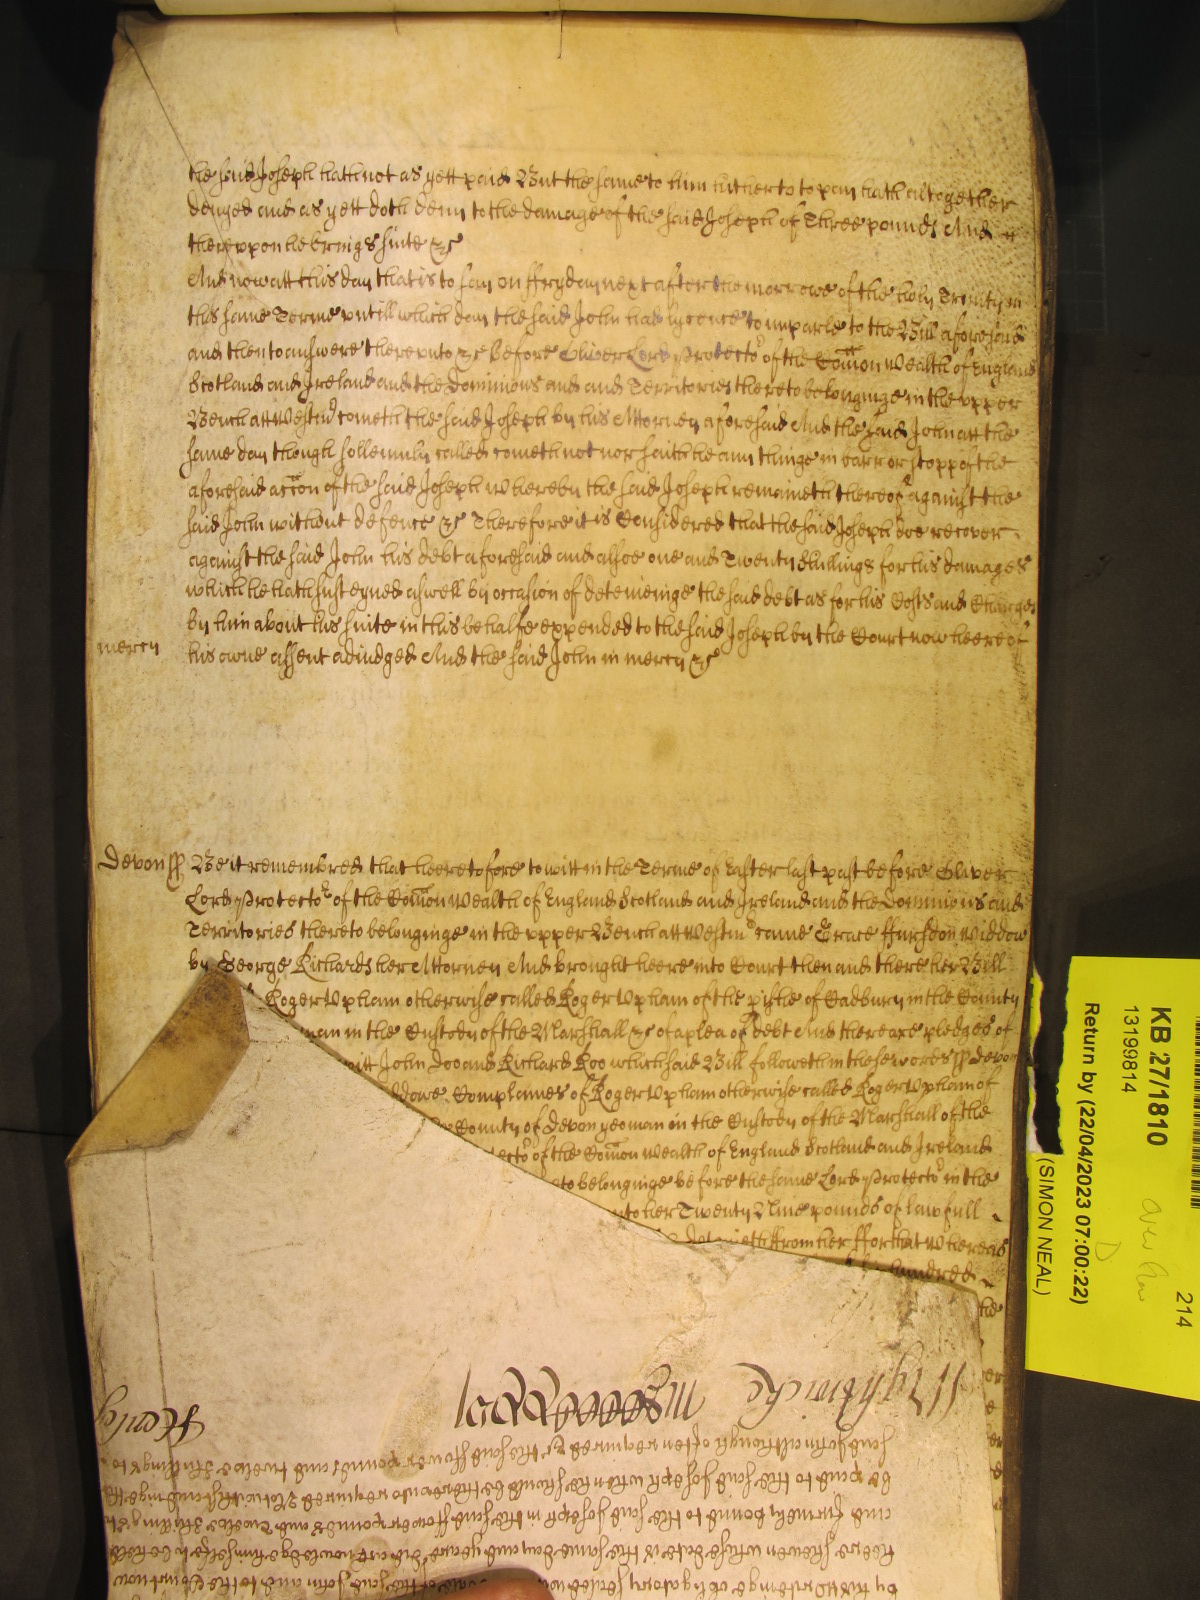 the said Joseph hath not as yett paid But the same to him hitherto to pay hath altogether
denyed and as yett doth deny to the damage of the said Joseph of Three pounds And
thereuppon he brings suite &c
And now att this day that is to say on ffryday next after the morrowe of the holy Trinity in
this same Terme untill which day the said John had lycence to imparle to the Bill aforesaid
and then to answere thereunto &c Before Oliver Lord Protector of the Comon Wealth of England
Scotland and Ireland and the Dominions and and Territories thereto belonginge in the upper
Bench att Westm cometh the said Joseph by his Attorney aforesaid And the said John att the
same day though sollemnly called cometh not nor saith he any thinge in barr or stopp of the
aforesaid accon of the said Joseph whereby the said Joseph remaineth thereof against the
said John without defence &c Therefore it is Considered that the said Joseph doe recover
against the said John his debt aforesaid and alsoe one and Twenty Shillings for his damages
which he hath susteyned aswell by occasion of deteineinge the said debt as for his Costs and Charges
by him about his suite in this behalfe expended to the said Joseph by the Court now heere of
mercy his owne assent adiudged And the said John in mercy &c
Devon ss Be it remembred that heeretofore to witt in the Terme of Easter last past before Oliver
Lord Protector of the Comon Wealth of England Scotland and Ireland and the Dominions and
Territories thereto belonginge in the upper Bench att Westm came Grace ffursdon Widdow
by George Richards her Attorney And brought heere into Court then and there her Bill
Roger Upham otherwise called Roger Upham of the pishe of Cadbury in the County
man in the Custody of the Marshall &c of a plea of debt And there are pledges of
witt John Doo and Richard Roo which said Bill followeth in these words ss Devon
ddowe Complaines of Roger Upham otherwise called Roger Upham of
County of Devon yeoman in the Custody of the Marshall of the
tector of the Comon Wealth of England Scotland and Ireland
to belonginge before the same Lord Protector in the
unto her Twenty Nine pounds of lawfull
from her ffor that Whereas
hundred
the
KB 27/1810
13199814
214
Return by (22/04/2023 07:00:22)
D
(SIMON NEAL)
by his Writinge obligatory sealed
heere shewen whose date is the same day and yeare did acknowledge himselfe to be held
and firmely bound to the said Joseph in the said ffower pounds and Twelve Shillings
be paid to the said Joseph when he should be thereunto required Neverthelesse
said John although often required &c the said ffower pounds and twelve Shillings to